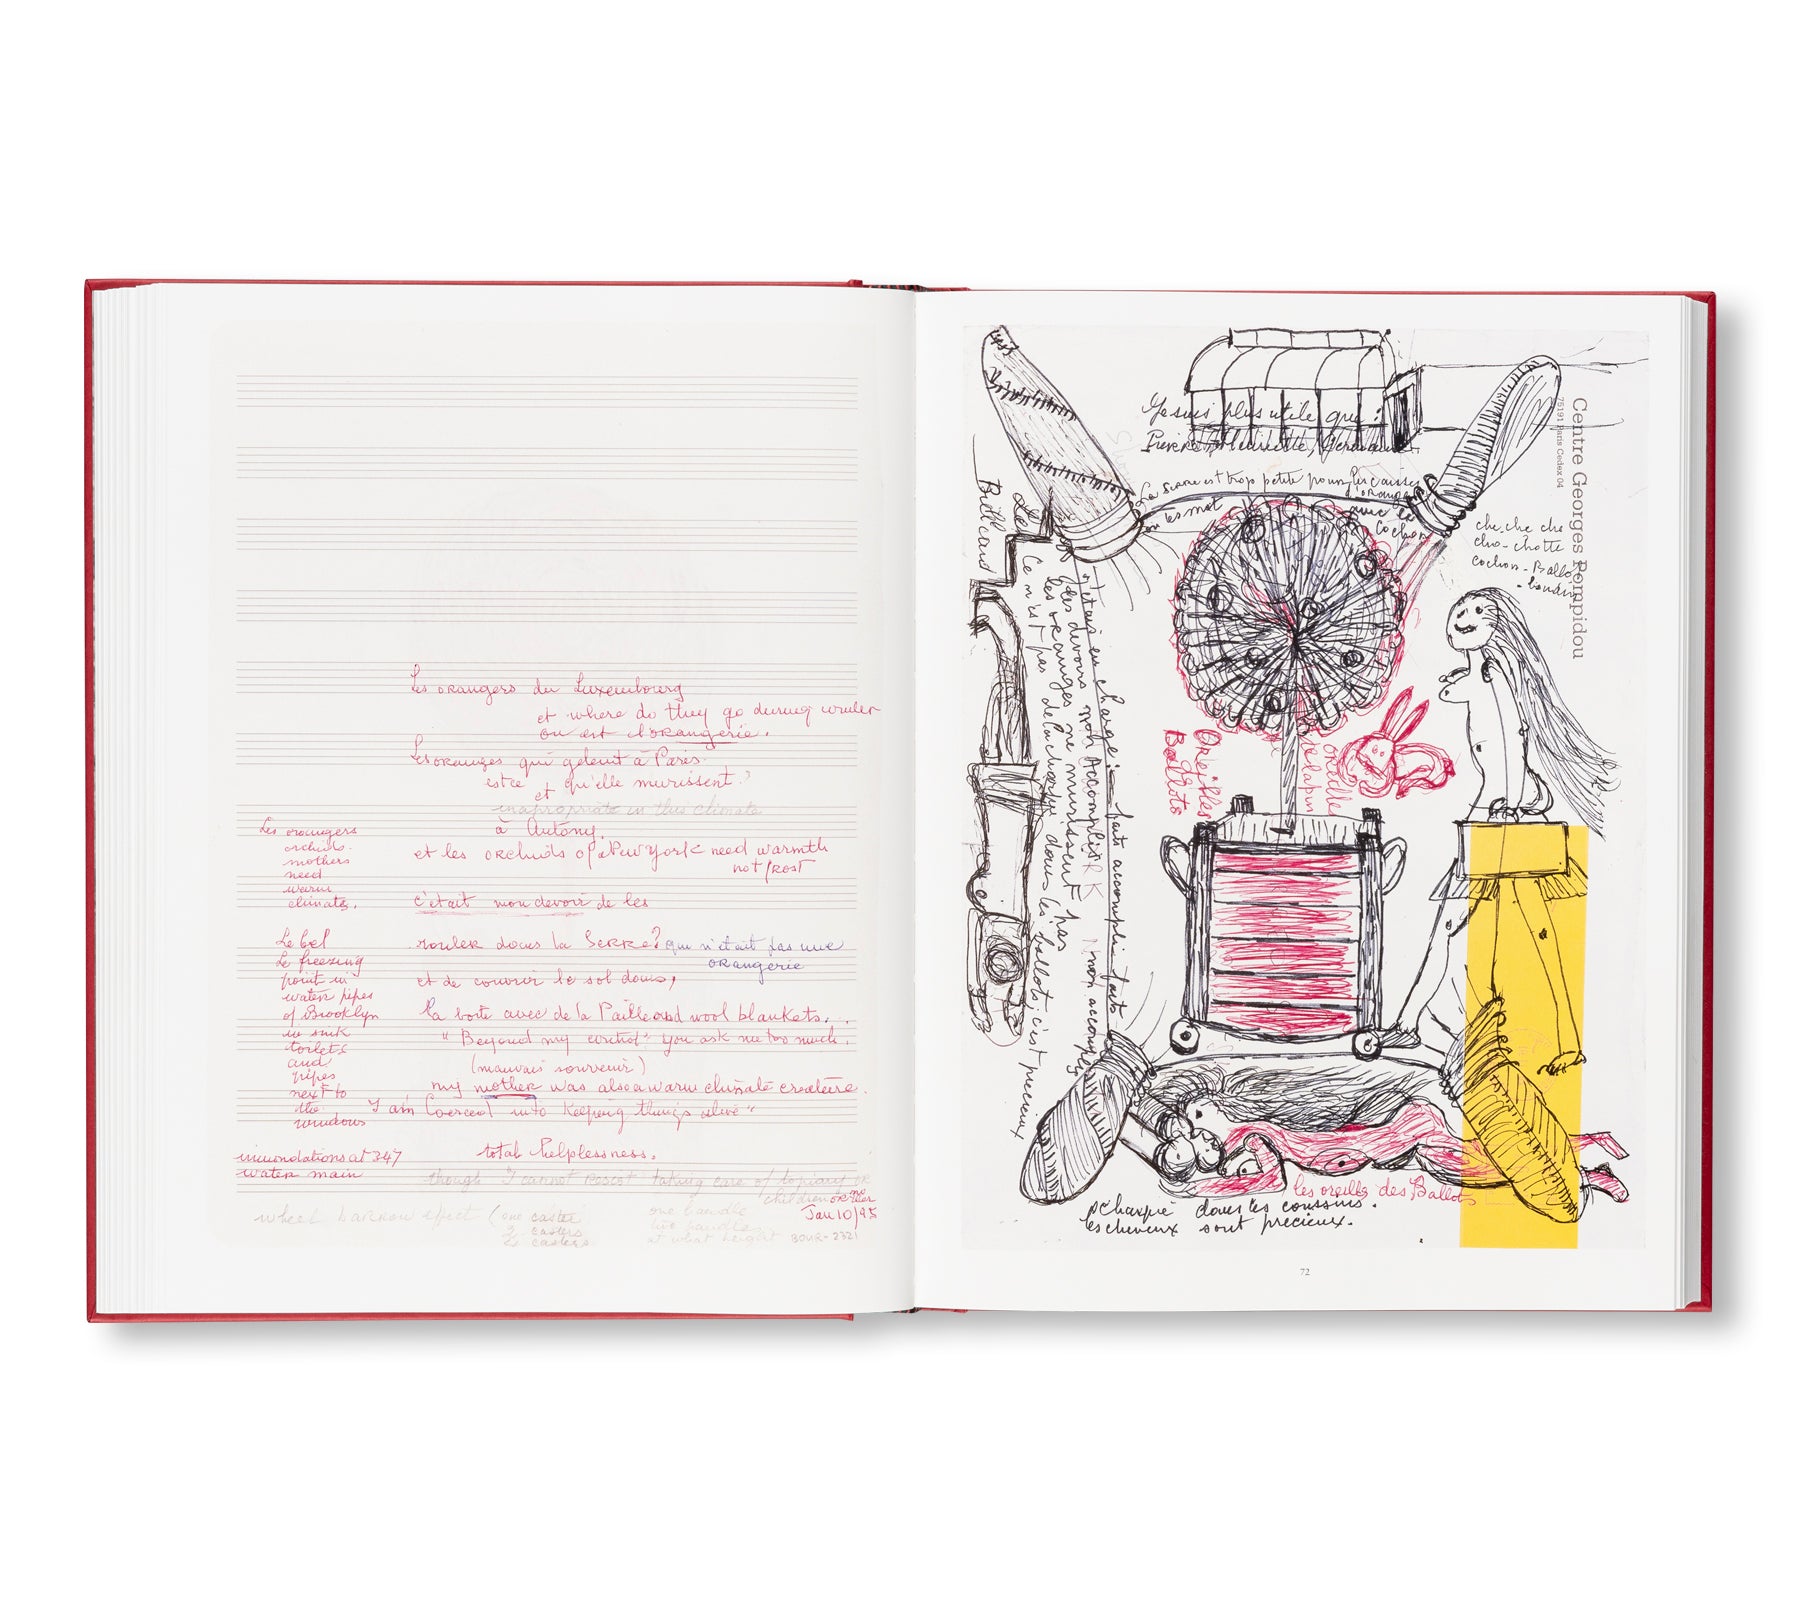 Les orangers du Luxembourg
et where do they go during winter
ou est l'orangerie.
Les oranges qui gelent à Paris.
est ce qu'elle murissent?
et
inapropriate in this climate
à Antony.
et les orchids of New York need warmth
not frost
c'était mon devoir de les
rouler dans la Serre? qui n'était pas une
orangerie
et de couvrir le sol dans,
la boite avec de la Paille and wool blankets.
"Beyond my control" you ask me too much.
(mauvais souvenir)
my mother was also a warm climate creature.
I am Coerced into Keeping things alive"
total helplessness.
though I cannot resist taking care of topiary or
children or me
Jan 10/95
wheel barrow effect (one caster
2 casters
casters
one handle
two handles
at what height
BOUR-2321
Les orangers
orchids.
mothers
need
warm
climate.
Le bel
Le freezing
point in
water pipes
of Brooklyn
in sink
toilets
and
pipes
next to
the
windows
innondations at 347
water main
Je suis plus utile que:
Pierre, Henriette,
La serre est trop petite pour les caisses
ou les met
avec le
cochon
Centre Georges Pompidou
75191 Paris Cedex 04
che che che
cho-chotte
cochon-Ballot
-boudin
J'étais en charge: fait accompli
des devoirs non Accomplis
les oranges ne murissent pas
Ce n'est pas de la charpi dans les ballots c'est precieux
Oreilles
Ballots
oreille
lapin
les oreilles des Ballots
écharpie dans les coussins.
les cheveux sont precieux.
72